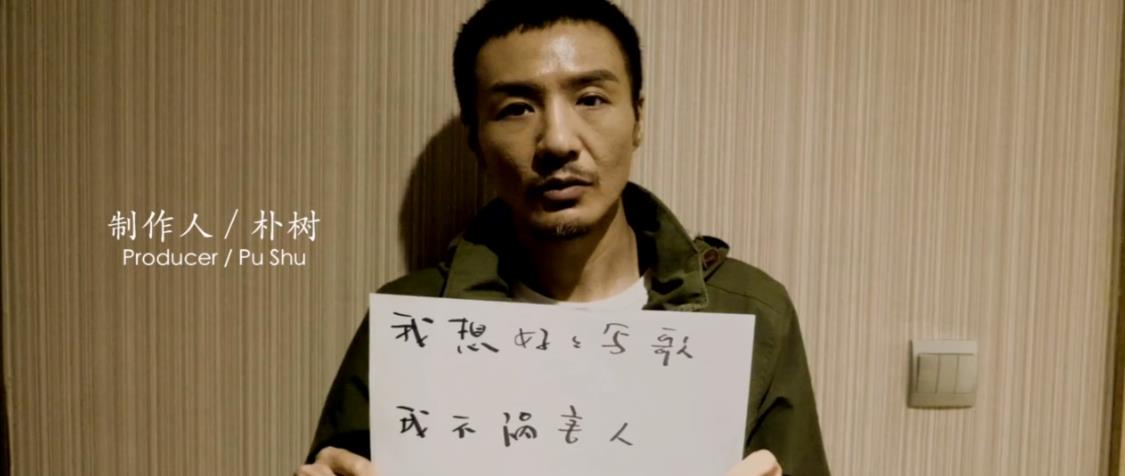 制作人 / 朴树
Producer / Pu Shu
我想好〻写歌
我不祸害人